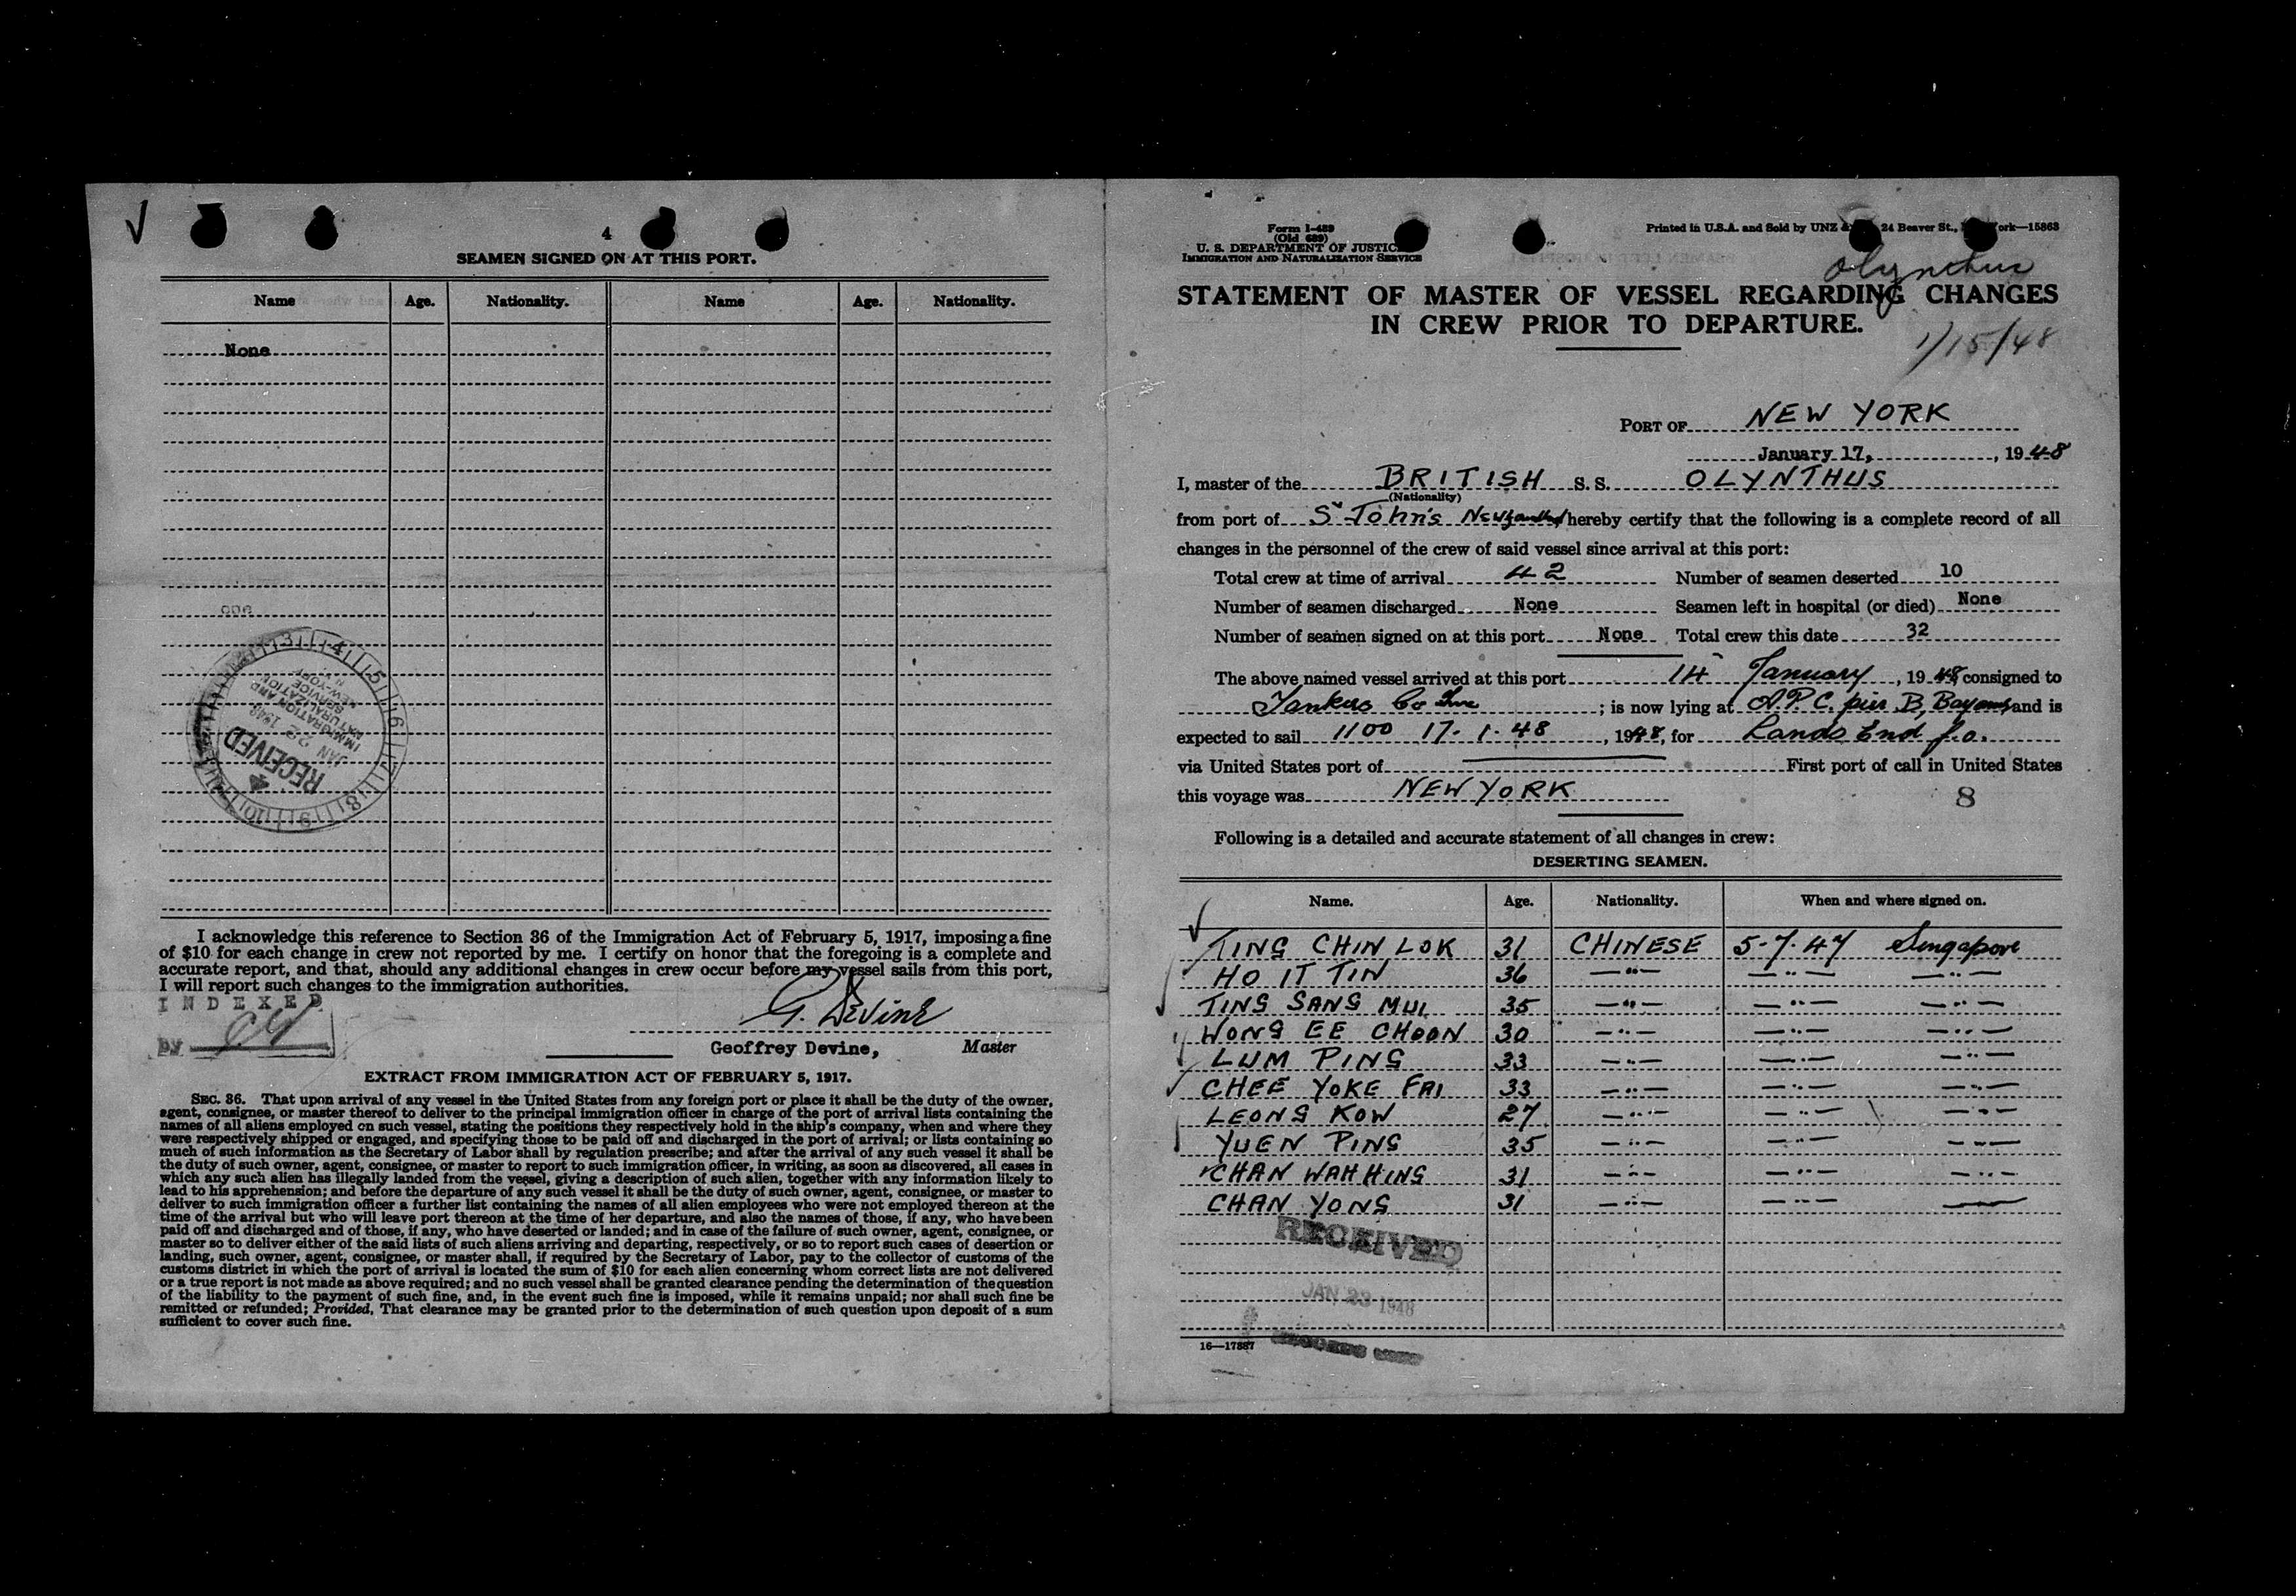 4
SEAMEN SIGNED ON AT THIS PORT.
Name Age. Nationality. Name Age. Nationality.
None
RECEIVED
JAN 1948
IMMIGRATION AND
NATURALIZATION
SERVICE
I acknowledge this reference to Section 36 of the Immigration Act of February 5, 1917, imposing a fine
of $10 for each change in crew not reported by me. I certify on honor that the foregoing is a complete and
accurate report, and that, should any additional changes in crew occur before my vessel sails from this port,
I will report such changes to the immigration authorities.
INDEXED
by
G. Devine
Geoffrey Devine, Master
EXTRACT FROM IMMIGRATION ACT OF FEBRUARY 5, 1917.
SEC. 36. That upon arrival of any vessel in the United States from any foreign port or place it shall be the duty of the owner,
agent, consignee, or master thereof to deliver to the principal immigration officer in charge of the port of arrival lists containing the
names of all aliens employed on such vessel, stating the positions they respectively hold in the ship's company, when and where they
were respectively shipped or engaged, and specifying those to be paid off and discharged in the port of arrival; or lists containing so
much of such information as the Secretary of Labor shall by regulation prescribe; and after the arrival of any such vessel it shall be
the duty of such owner, agent, consignee, or master to report to such immigration officer, in writing, as soon as discovered, all cases in
which any such alien has illegally landed from the vessel, giving a description of such alien, together with any information likely to
lead to his apprehension; and before the departure of any such vessel it shall be the duty of such owner, agent, consignee, or master to
deliver to such immigration officer a further list containing the names of all alien employees who were not employed thereon at the
time of the arrival but who will leave port thereon at the time of her departure, and also the names of those, if any, who have been
paid off and discharged and of those, if any, who have deserted or landed; and in case of the failure of such owner, agent, consignee, or
master so to deliver either of the said lists of such aliens arriving and departing, respectively, or so to report such cases of desertion or
landing, such owner, agent, consignee, or master shall, if required by the Secretary of Labor, pay to the collector of customs of the
customs district in which the port of arrival is located the sum of $10 for each alien concerning whom correct lists are not delivered
or a true report is not made as above required; and no such vessel shall be granted clearance pending the determination of the question
of the liability to the payment of such fine, and, in the event such fine is imposed, while it remains unpaid; nor shall such fine be
remitted or refunded; Provided, That clearance may be granted prior to the determination of such question upon deposit of a sum
sufficient to cover such fine.
Form I-489
(Old 689)
U. S. DEPARTMENT OF JUSTICE
IMMIGRATION AND NATURALIZATION SERVICE
Printed in U.S.A. and Sold by UNZ & 24 Beaver St., ork—15863
Olynthus
STATEMENT OF MASTER OF VESSEL REGARDING CHANGES
IN CREW PRIOR TO DEPARTURE.
1/15/48
PORT OF NEW YORK
January 17, , 1948
I, master of the BRITISH S. S. OLYNTHUS
(Nationality)
from port of St John's hereby certify that the following is a complete record of all
changes in the personnel of the crew of said vessel since arrival at this port:
Total crew at time of arrival 42 Number of seamen deserted 10
Number of seamen discharged None Seamen left in hospital (or died) None
Number of seamen signed on at this port None Total crew this date 32
The above named vessel arrived at this port 14 January , 1948, consigned to
Tankers Co Inc ; is now lying at pier B, and is
expected to sail 1100 17.1.48 , 1948, for Lands End f.o.
via United States port of First port of call in United States
this voyage was NEW YORK
8
Following is a detailed and accurate statement of all changes in crew:
DESERTING SEAMEN.
Name. Age. Nationality. When and where signed on.
TING CHIN LOK 31 CHINESE 5-7-47 Singapore
HO IT TIN 36 —"— —"— —"—
TING SANG MUI 35 —"— —"— —"—
WONG EE CHOON 30 —"— —"— —"—
LUM PING 33 —"— —"— —"—
CHEE YOKE FAI 33 —"— —"— —"—
LEONG KOW 27 —"— —"— —"—
YUEN PING 35 —"— —"— —"—
CHAN WAH HING 31 —"— —"— —"—
CHAN YONG 31 —"— —"— ——
RECEIVED
JAN 23 1948
16—17887